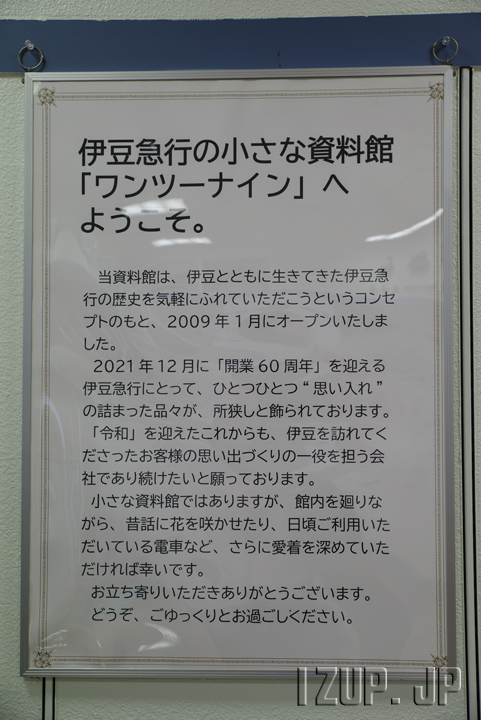 伊豆急行の小さな資料館
「ワンツーナイン」へ
ようこそ。
当資料館は、伊豆とともに生きてきた伊豆急
行の歴史を気軽にふれていただこうというコンセ
プトのもと、2009年1月にオープンいたしま
した。
2021年12月に「開業60周年」を迎える
伊豆急行にとって、ひとつひとつ“思い入れ”
の詰まった品々が、所狭しと飾られております。
「令和」を迎えたこれからも、伊豆を訪れてく
ださったお客様の思い出づくりの一役を担う会
社であり続けたいと願っております。
小さな資料館ではありますが、館内を廻りな
がら、昔話に花を咲かせたり、日頃ご利用いた
だいている電車など、さらに愛着を深めていた
だければ幸いです。
お立ち寄りいただきありがとうございます。
どうぞ、ごゆっくりとお過ごしください。
IZUP.JP